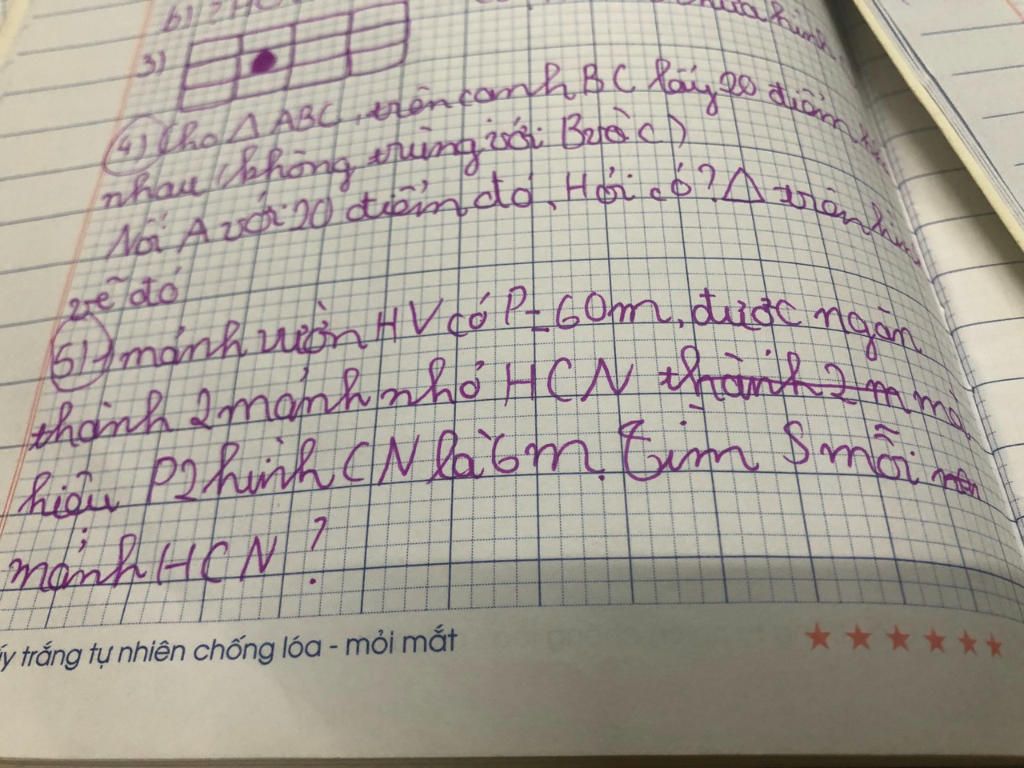 b) 2H
3)
4) Cho Δ ABC, trên cạnh BC lấy 20 điểm
nhau (không trùng với B và C)
Nối A với 20 điểm đó. Hỏi có ? Δ trên hình
vẽ đó
5) 1 mảnh vườn HV có P = 60m, được ngăn
thành 2 mảnh nhỏ HCN thành 2 m mà
hiệu P 2 hình CN là 6m. Tìm S mỗi
mảnh HCN ?
ấy trắng tự nhiên chống lóa - mỏi mắt